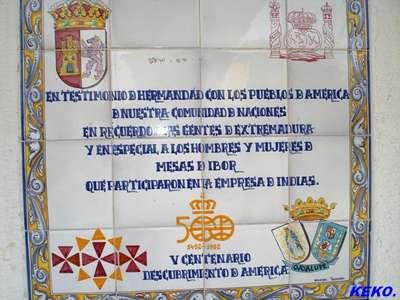 EN TESTIMONIO D HERMANDAD CON LOS PUEBLOS D AMERICA
D NUESTRA COMUNIDAD D NACIONES
EN RECUERDO LAS GENTES D EXTREMADURA
Y EN ESPECIAL A LOS HOMBRES Y MUJERES D
MESAS D IBOR
QUE PARTICIPARON EN LA EMPRESA D INDIAS.
500
1492-1992
V CENTENARIO
DESCUBRIMIENTO D AMERICA
GUADALUPE
KEKO.